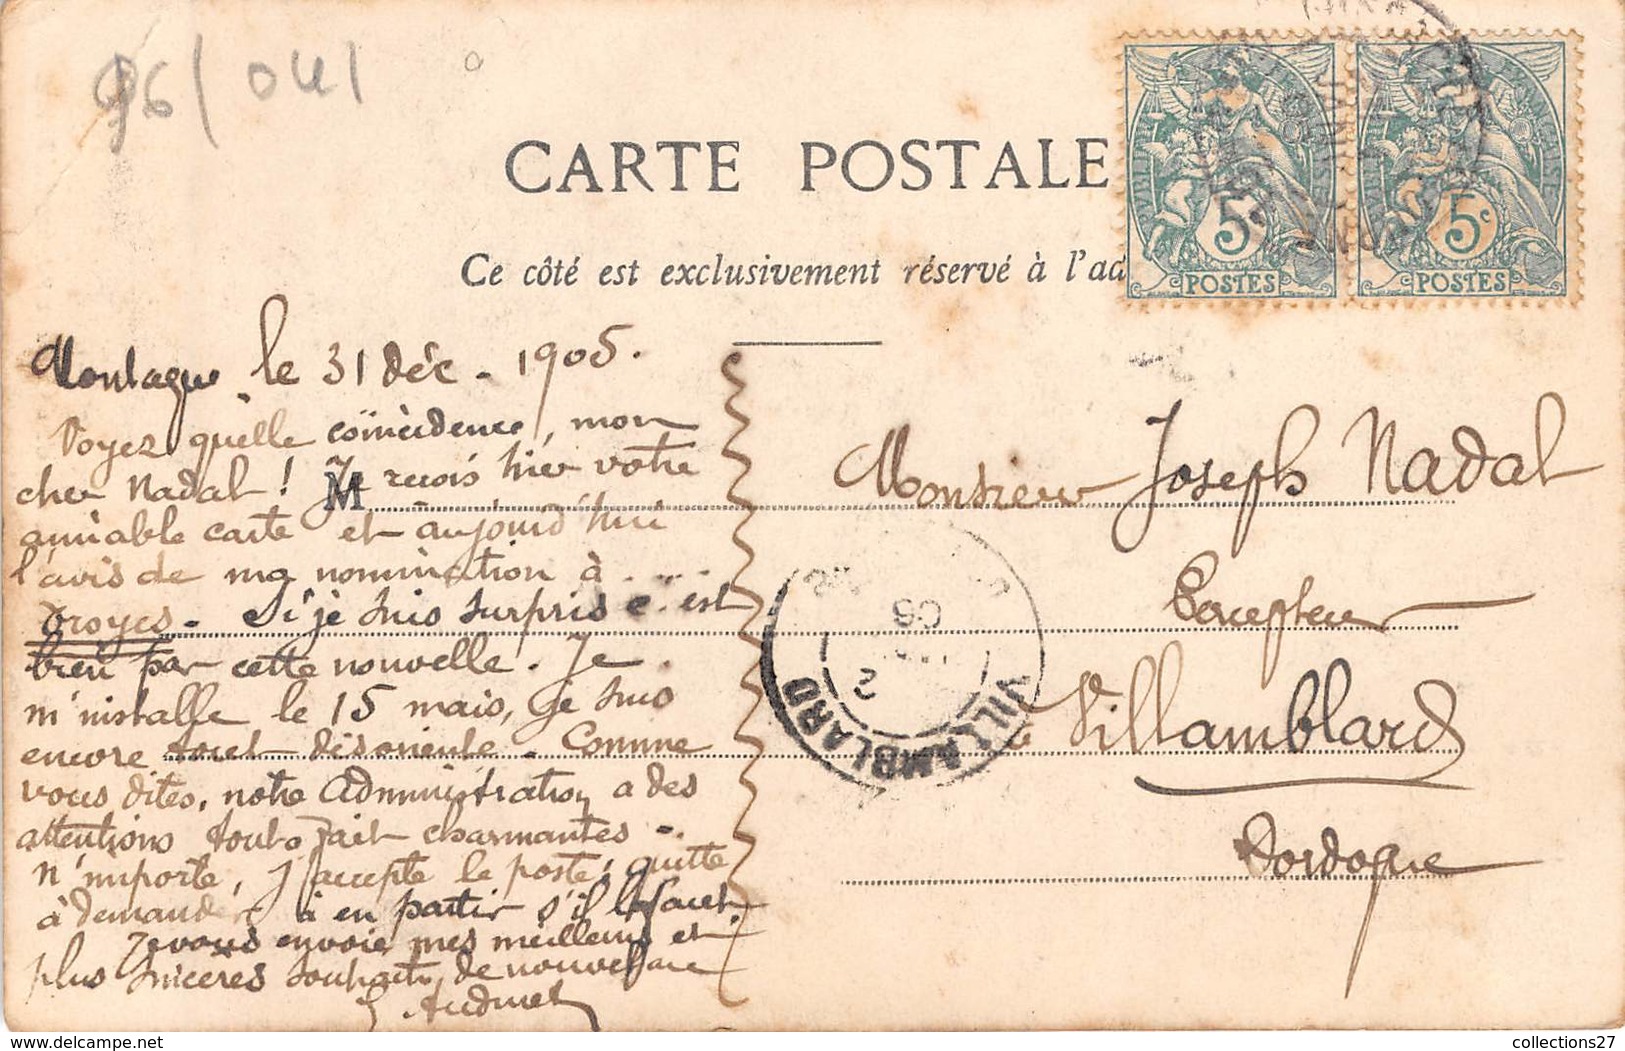 96/041
CARTE POSTALE
Ce côté est exclusivement réservé à l'ad
5c
POSTES
5c
POSTES
Montague le 31 Déc. 1905.
Voyez quelle coïncidence, mon
cher Nadal ! Je reçois hier votre
M
aimable carte et aujourd'hui
l'avis de ma nomination à ....
Troyes. Si je suis surpris c'est
bien par cette nouvelle. Je
m'installe le 15 mais, je suis
encore tout désorienté. Comme
vous dites, notre Administration a des
attentions tout à fait charmantes -.
N'importe, j'accepte le poste, quitte
à demander à en partir s'il le faut.
Je vous envoie mes meilleurs et
plus sincères souhaits de nouvel an
Monsieur Joseph Nadal
Percepteur
à Villamblard
Dordogne
VILLAMBLARD
2
06
collections27